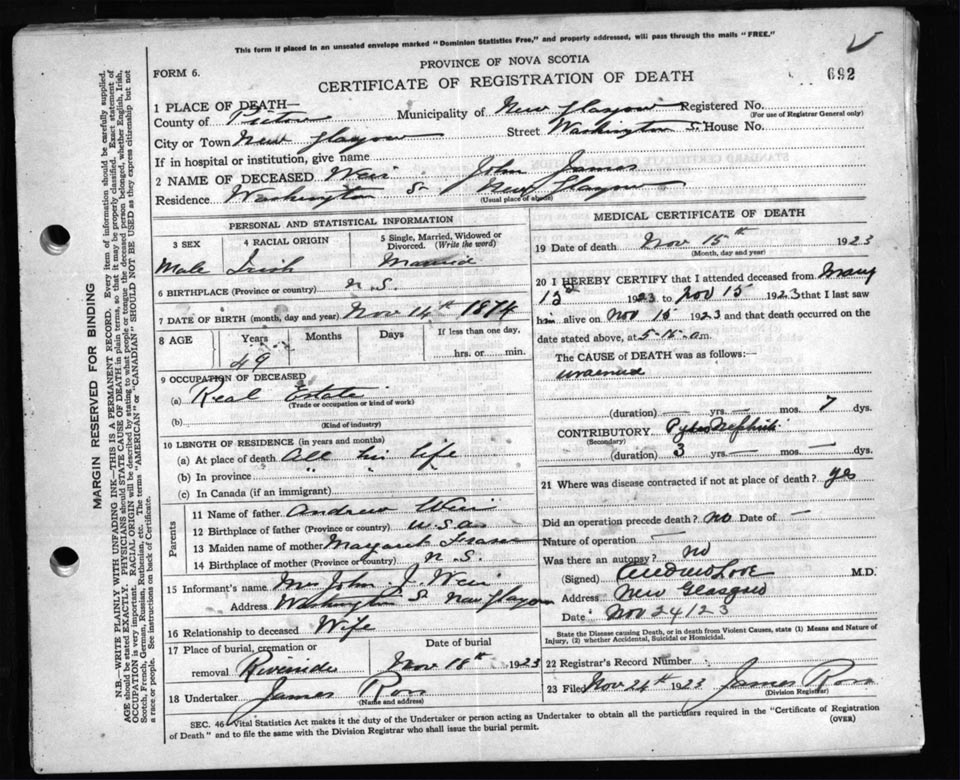 This form if placed in an unsealed envelope marked "Dominion Statistics Free," and properly addressed, will pass through the mails "FREE."
PROVINCE OF NOVA SCOTIA
FORM 6.
CERTIFICATE OF REGISTRATION OF DEATH
692
1 PLACE OF DEATH—
County of Pictou Municipality of New Glasgow Registered No.
(For use of Registrar General only)
City or Town New Glasgow Street Washington S. House No.
If in hospital or institution, give name
2 NAME OF DECEASED Weir John James
Residence Washington St New Glasgow
(Usual place of abode)
PERSONAL AND STATISTICAL INFORMATION
3 SEX
4 RACIAL ORIGIN
5 Single, Married, Widowed or Divorced. (Write the word)
Male Irish Married
6 BIRTHPLACE (Province or country) N.S.
7 DATE OF BIRTH (month, day and year) Nov 14th 1874
8 AGE Years Months Days If less than one day,
hrs. or min.
49
9 OCCUPATION OF DECEASED
(a) Real Estate
(Trade or occupation or kind of work)
(b)
(Kind of industry)
10 LENGTH OF RESIDENCE (in years and months)
(a) At place of death All his life
(b) In province " " "
(c) In Canada (if an immigrant)
Parents
11 Name of father Andrew Weir
12 Birthplace of father (Province or country)
13 Maiden name of mother Margaret Fraser
14 Birthplace of mother (Province or country) N.S.
15 Informant's name Mrs John J. Weir
Address Washington St New Glasgow
16 Relationship to deceased Wife
17 Place of burial, cremation or removal Riverside
Date of burial
Nov 18th 1923
18 Undertaker James Ross
(Name and address)
MEDICAL CERTIFICATE OF DEATH
19 Date of death Nov 15th 1923
(Month, day and year)
20 I HEREBY CERTIFY that I attended deceased from
1923 to Nov 15 1923 that I last saw
him alive on Nov 15 1923 and that death occurred on
date stated above, at 5-15 a.m.
The CAUSE of DEATH was as follows:—
uraemia
(duration) — yrs. — mos. 7 dys.
CONTRIBUTORY Pyko Nephritis
(Secondary)
(duration) 3 yrs. — mos. — dys.
21 Where was disease contracted if not at place of death? yes
Did an operation precede death? no Date of —
Nature of operation —
Was there an autopsy? no
(Signed) Love M.D.
Address New Glasgow
Date Nov 24/23
State the Disease causing Death, or in death from Violent Causes, state (1) Means and Nature of
Injury, (2) whether Accidental, Suicidal or Homicidal.
22 Registrar's Record Number
23 Filed Nov 24th 1923 James Ross
(Division Registrar)
SEC. 46—Vital Statistics Act makes it the duty of the Undertaker or person acting as Undertaker to obtain all the particulars required in the "Certificate of Registration
of Death" and to file the same with the Division Registrar who shall issue the burial permit.
(OVER)
MARGIN RESERVED FOR BINDING
N.B.—WRITE PLAINLY WITH UNFADING INK—THIS IS A PERMANENT RECORD. Every item of information should be carefully supplied.
AGE should be stated EXACTLY. PHYSICIANS should STATE CAUSE OF DEATH in plain terms, so that it may be properly classified. Exact statement of
OCCUPATION is very important. RACIAL ORIGIN will be described by stating to what people or tongue the deceased person belonged, whether English, Irish,
Scotch, French, German, Russian, Ruthenian, etc. The terms "AMERICAN" or "CANADIAN" SHOULD NOT BE USED as they express citizenship but not
a race or people. See instructions on back of Certificate.